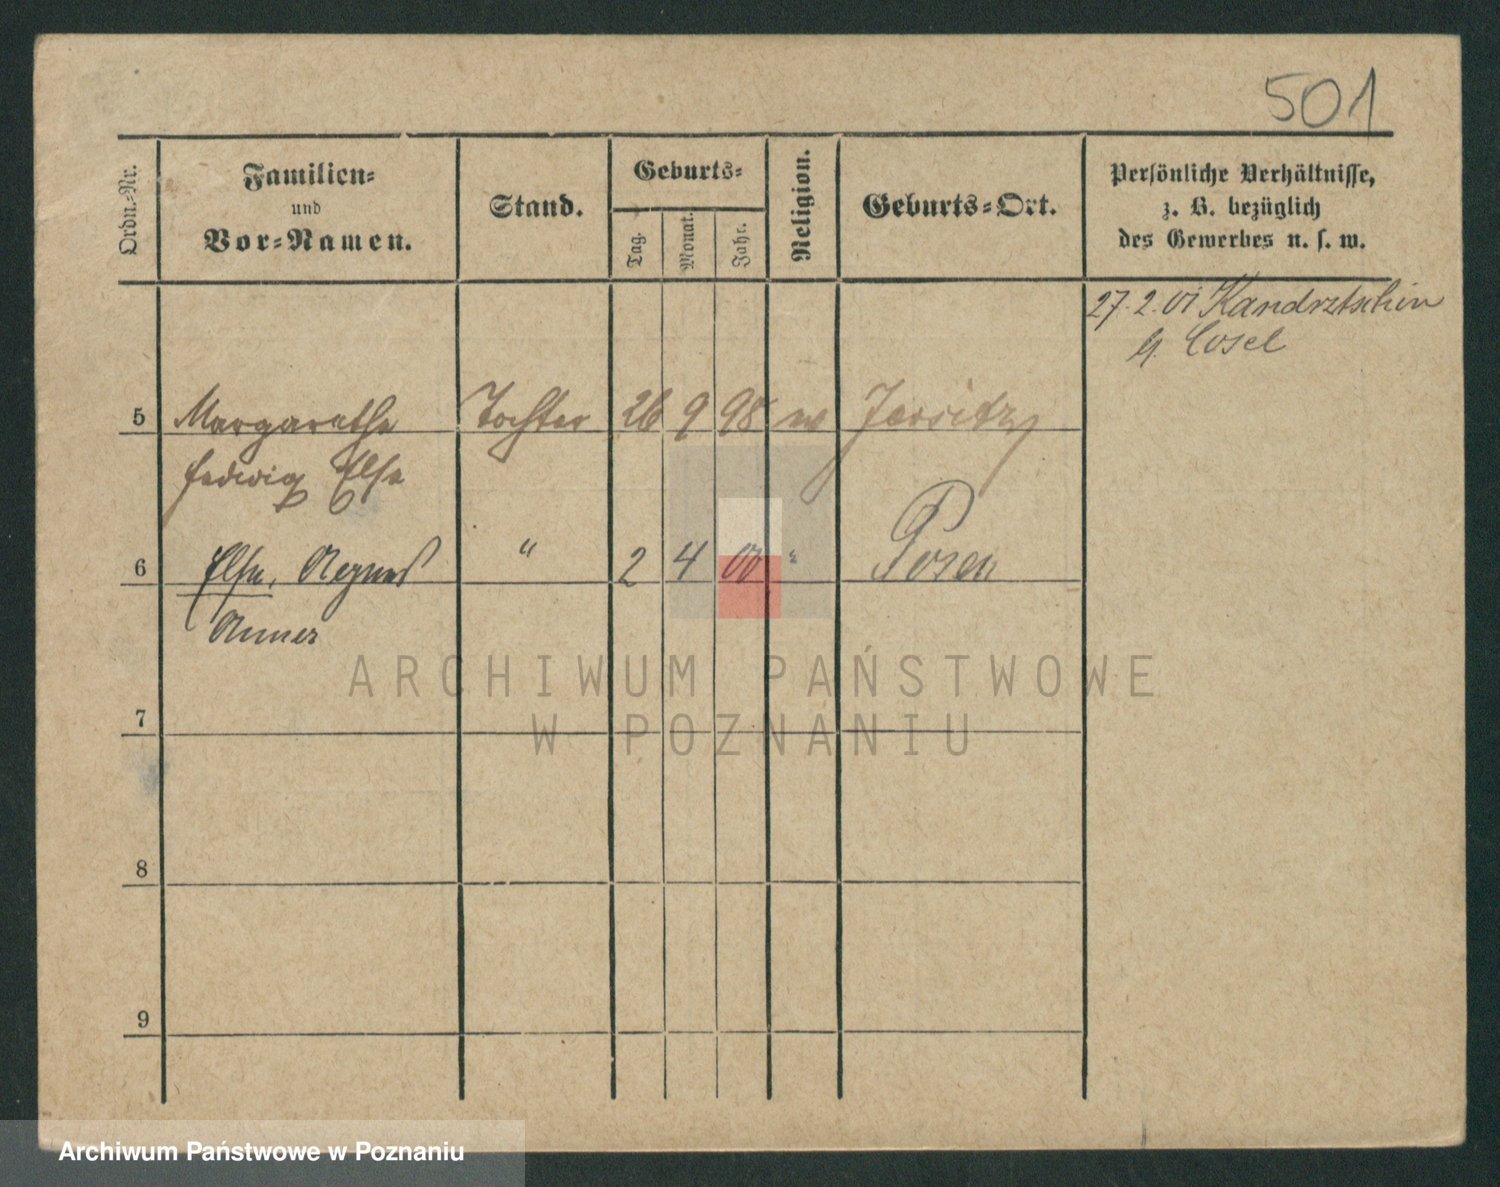 501
Ordn.-Nr.
Familien-
und
Vor-Namen.
Stand.
Geburts-
Tag.
Monat.
Jahr.
Religion.
Geburts-Ort.
Persönliche Verhältnisse,
z. B. bezüglich
des Gewerbes u. s. w.
27.2.01 Kandrztschin
Cosel
5 Margarethe Tochter 26 9 98 Jersitz
Hedwig Else
6 Else, Agnes " 2 4 00 " Posen
7
8
9
ARCHIWUM PAŃSTWOWE
W POZNANIU
Archiwum Państwowe w Poznaniu